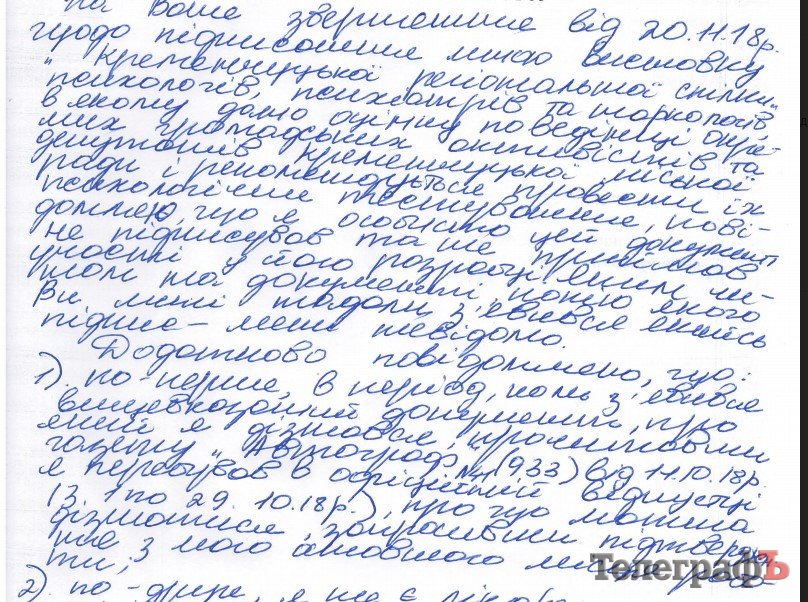 На Ваше звернення від 20.11.18р.
щодо підписання мною висновку
"Кременчуцької регіональної спілки
психологів, психіатрів та наркологів",
в якому дано оцінку поведінці окре-
мих громадських активістів та
депутатів Кременчуцької міської
ради і рекомендується провести їх
психологічне тестування, пові-
домляю, що я особисто цей документ
не підписував та не приймав
участі у його розробці. Яким чи-
ном на документі, копію якого
Ви мені надали, з'явився якийсь
підпис - мені невідомо.
Додатково повідомляю, що:
1). по-перше, в період, коли з'явився
вищевказаний документ, про
який я дізнався, прочитавши
газету "Автограф" №41(933) від 11.10.18р.
я перебував в офіційній відпустці
(3 1 по 29.10.18р.), про що можна
дізнатися, запросивши підтверд
не з мого основного місця робо-
ти;
2) по-друге, я не є
ТелеграфЪ